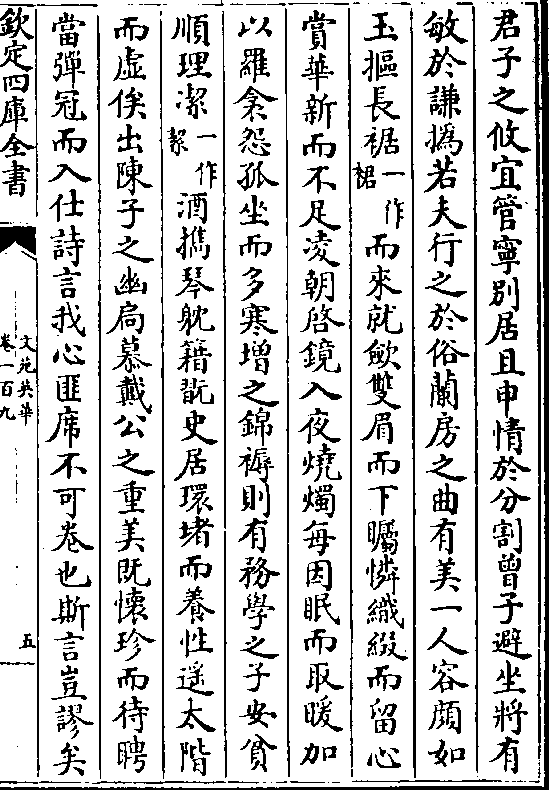 君子之攸宜管寧別居且申情於分割曾子避坐將有
敏於謙撝若夫行之於俗蘭房之曲有美一人容顔如
玉摳長裾一作裙而來就斂雙眉而下矚憐織綴而留心
賞華新而不足凌朝啓鏡入夜燒燭每因眠而取暖加
以羅衾怨孤坐而多寒增之錦褥則有務學之子安貧
順理潔一作絜酒攜琴躭籍翫史居環堵而養性遥太階
而虚俟出陳子之幽扃慕戴公之重美既懷珍而待聘
當彈冠而入仕詩言我心匪席不可卷也斯言豈謬矣
欽定四庫全書
文苑英華
卷一百九
五